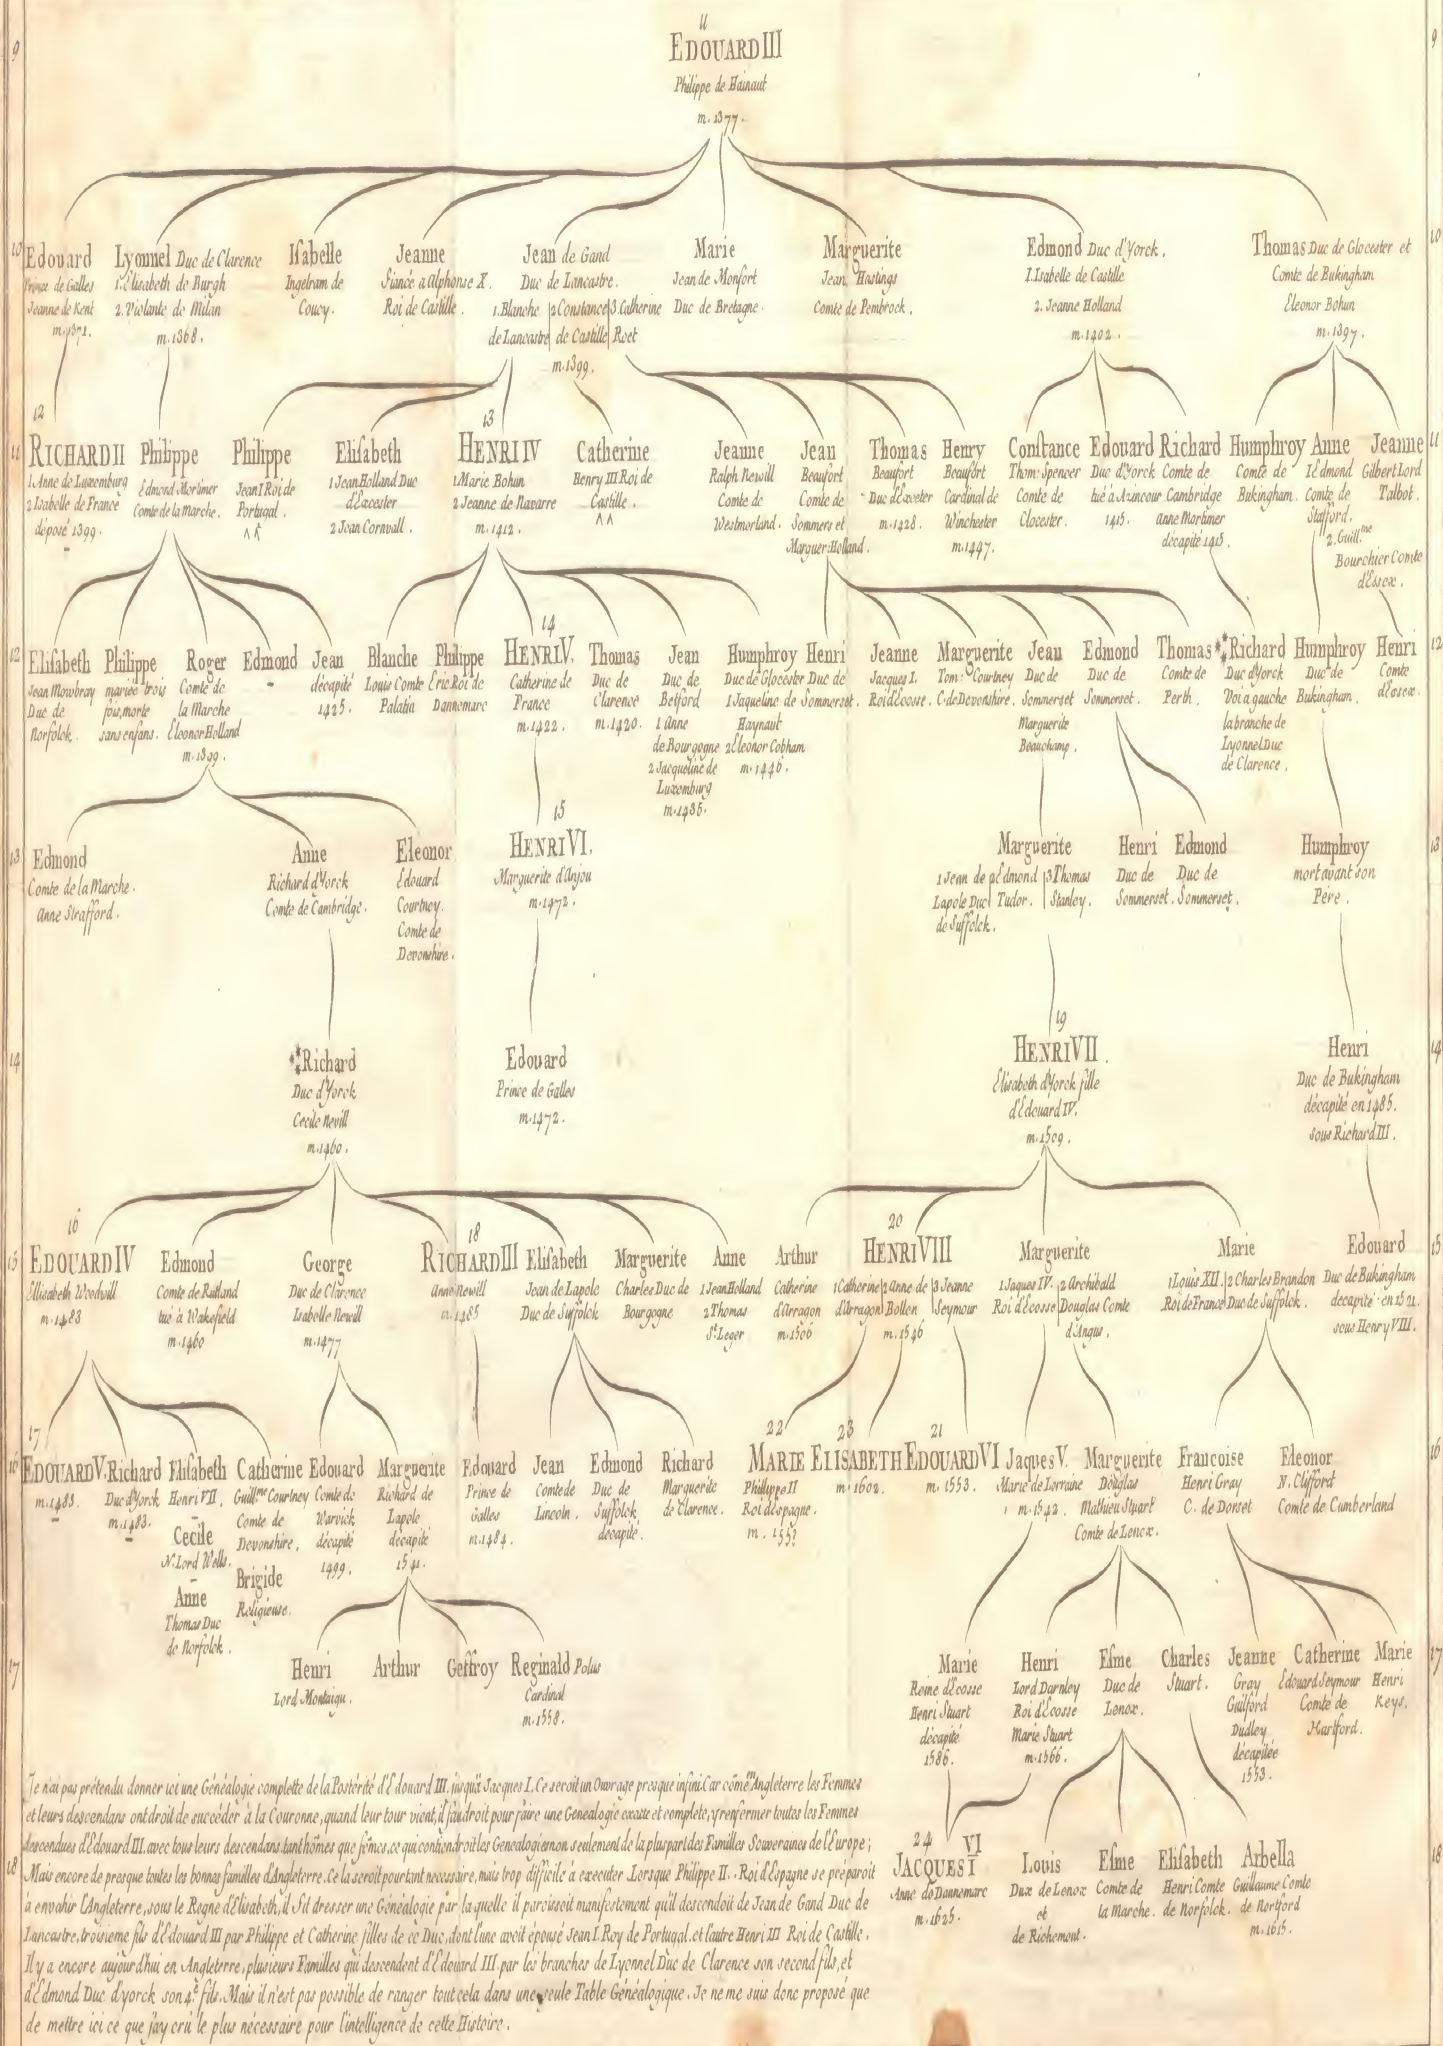 11
9 EDOUARD III 9
Philippe de Hainaut
m. 1377.
10 Edouard
Prince de Galles
Jeanne de Kent
m. 1371.
Lyonnel Duc de Clarence
1. Elisabeth de Burgh
2. Violante de Milan
m. 1368.
Isabelle
Ingelram de
Coucy.
Jeanne
fiancée a Alphonse X.
Roi de Castille.
Jean de Gand
Duc de Lancastre.
1. Blanche | 2 Constance | 3 Catherine
de Lancastre | de Castille | Roet
m. 1399.
Marie
Jean de Monfort
Duc de Bretagne.
Marguerite
Jean Hastings
Comte de Pembrock.
Edmond Duc d'Yorck.
1. Isabelle de Castille
2. Jeanne Holland
m. 1402.
Thomas Duc de Glocester et 10
Comte de Bukingham
Eleonor Bohun
m. 1397.
12
11 RICHARD II
1. Anne de Luxemburg
2 Isabelle de France
déposé 1399.
Philippe
Edmond Mortimer
Comte de la Marche.
Philippe
Jean I Roi de
Portugal.
Elisabeth
1 Jean Holland Duc
d'Excester
2 Jean Cornvall.
13
HENRI IV
1. Marie Bohun
2 Jeanne de Navarre
m. 1412.
Catherine
Henry III Roi de
Castille.
Jeanne
Ralph Newill
Comte de
Westmorland.
Jean
Beaufort
Comte de
Sommerset
Marguer. Holland.
Thomas
Beaufort
Duc d'Exveter
m. 1428.
Henry
Beaufort
Cardinal de
Winchester
m. 1447.
Constance
Thom. Spencer
Comte de
Clocester.
Edouard
Duc d'Yorck
tué à Azincour
1415.
Richard
Comte de
Cambridge
anne Mortimer
décapité 1415.
Humphroy
Comte de
Bukingham.
Anne
1 Edmond
Comte de
Stafford.
2. Guill.me
Bourchier Comte
d'Essex.
Jeanne 11
Gilbert Lord
Talbot.
12 Elisabeth
Jean Mowbray
Duc de
Norfolck.
Philippe
mariée trois
fois, morte
sans enfans.
Roger
Comte de
la Marche
Eleonor Holland
m. 1399.
Edmond
Jean
décapité
1425.
Blanche
Louis Comte
Palatin
Philippe
Eric Roi de
Dannemarc
14
HENRI V.
Catherine de
France
m. 1422.
Thomas
Duc de
Clarence
m. 1420.
Jean
Duc de
Betford
1 Anne
de Bourgogne
2 Jacqueline de
Luxemburg
m. 1435.
Humphroy
Duc de Glocester
1 Jaqueline de
Haynaut
2 Eleonor Cobham
m. 1446.
Henri
Duc de
Somerset.
Jeanne
Jacques I.
Roi d'Ecosse.
Marguerite
Tom: Courtney
C. de Devonshire.
Jean
Duc de
Sommerset
Marguerite
Beauchamp.
Edmond
Duc de
Sommerset.
Thomas
Comte de
Perth.
Richard
Duc d'Yorck
Voi a gauche
la branche de
Lyonnel Duc
de Clarence.
Humphroy
Duc de
Bukingham.
Henri 12
Comte
d'Essex.
13 Edmond
Comte de la Marche.
Anne Strafford.
Anne
Richard d'Yorck
Comte de Cambridge.
Eleonor
Edouard
Courtney.
Comte de
Devonshire.
15
HENRI VI.
Marguerite d'Anjou
m. 1472.
Marguerite
1 Jean de | 2 Edmond | 3 Thomas
Lapole Duc | Tudor. | Stanley.
de Suffolck.
Henri
Duc de
Somerset.
Edmond
Duc de
Sommerset.
Humphroy 13
mort avant son
Pére.
14 Richard
Duc d'Yorck
Cecile Nevill
m. 1460.
Edouard
Prince de Galles
m. 1472.
19
HENRI VII.
Elisabeth d'Yorck fille
d'Edouard IV.
m. 1509.
Henri 14
Duc de Bukingham
décapité en 1485.
sous Richard III.
16
15 EDOUARD IV
Ellisabeth Woodwill
m. 1483
Edmond
Comte de Rutland
tué à Wakefield
m. 1460
George
Duc de Clarence
Isabelle Newill
m. 1477
18
RICHARD III
Anne Newill
m. 1485
Elisabeth
Jean de Lapole
Duc de Suffolck
Marguerite
Charles Duc de
Bourgogne
Anne
1 Jean Holland
2 Thomas
St Leger
Arthur
Catherine
d'Arragon
m. 1506
20
HENRI VIII
1 Catherine | 2 Anne de | 3 Jeanne
d'Arragon | Bollen | Seymour
m. 1546
Marguerite
1 Jaques IV. | 2 Archibald
Roi d'Ecosse | Douglas Comte
d'Angus.
Marie
1 Louis XII. | 2 Charles Brandon
Roi de France | Duc de Suffolck.
Edouard 15
Duc de Bukingham
decapité en 1521.
sous Henry VIII.
17
16 EDOUARD V.
m. 1483.
Richard
Duc d'Yorck
m. 1483.
Elisabeth
Henri VII.
Cecile
N. Lord Wells.
Anne
Thomas Duc
de Norfolck.
Catherine
Guill.me Courtney
Comte de
Devonshire.
Brigide
Religieuse.
Edouard
Comte de
Warvick
décapité
1499.
Marguerite
Richard de
Lapole
décapité
1541.
Edouard
Prince de
Galles
m. 1484.
Jean
Comte de
Lincoln.
Edmond
Duc de
Suffolck
décapité.
Richard
Marguerite
de Clarence.
22
MARIE
Philippe II
Roi d'Espagne.
23
ELISABETH
m. 1602.
21
EDOUARD VI
m. 1553.
Jaques V.
Marie de Lorraine
m. 1542.
Marguerite
Douglas
Mathieu Stuart
Comte de Lenox.
Francoise
Henri Gray
C. de Dorset
Eleonor 16
N. Clifford
Comte de Cumberland
17 Henri
Lord Montaigu.
Arthur
Geffroy
Reginald Polus
Cardinal
m. 1558.
Marie
Reine d'Ecosse
Henri Stuart
décapité
1586.
Henri
Lord Darnley
Roi d'Ecosse
Marie Stuart
m. 1566.
Esme
Duc de
Lenox.
Charles
Stuart.
Jeanne
Gray
Guilford
Dudley
décapitée
1553.
Catherine
Edouard Seymour
Comte de
Hartford.
Marie 17
Henri
Keys.
24 VI
JACQUES I
Anne de Dannemarc
m. 1625.
Louis
Duc de Lenox
et
de Richemont.
Esme
Comte de
la Marche.
Elisabeth
Henri Comte
de Norfolck.
Arbella 18
Guillaume Comte
de Nortford
m. 1615.
Je n'ai pas prétendu donner ici une Généalogie complette de la Postérité d'Edouard III. jusqu'à Jacques I. Ce seroit un Ouvrage presque infini. Car cõme en Angleterre les Femmes
et leurs descendans ont droit de succéder à la Couronne, quand leur tour vient, il faudroit pour faire une Genealogie exacte et complete, y renfermer toutes les Femmes
descendues d'Edouard III. avec tous leurs descendans tant hõmes que fẽmes, ce qui contiendroit les Genealogies non seulement de la pluspart des Familles Souveraines de l'Europe;
18 Mais encore de presque toutes les bonnes familles d'Angleterre. Ce la seroit pourtant necessaire, mais trop difficile à executer. Lorsque Philippe II. Roi d'Espagne se préparoit
à envahir l'Angleterre, sous le Regne d'Elisabeth, il s'fil dresser une Généalogie par la quelle il paroissoit manifestement qu'il descendoit de Jean de Gand Duc de
Lancastre, troisieme fils d'Edouard III par Philippe et Catherine filles de ce Duc, dont l'une avoit épousé Jean I. Roy de Portugal. et l'autre Henri III Roi de Castille.
Il y a encore aujourd'hui en Angleterre, plusieurs Familles qui descendent d'Edouard III. par les branches de Lyonnel Duc de Clarence son second fils, et
d'Edmond Duc d'yorck son 4e fils. Mais il n'est pas possible de ranger tout cela dans une seule Table Généalogique. Je ne me suis donc proposé que
de mettre ici ce que j'ay crû le plus nécessaire pour l'intelligence de cette Histoire.